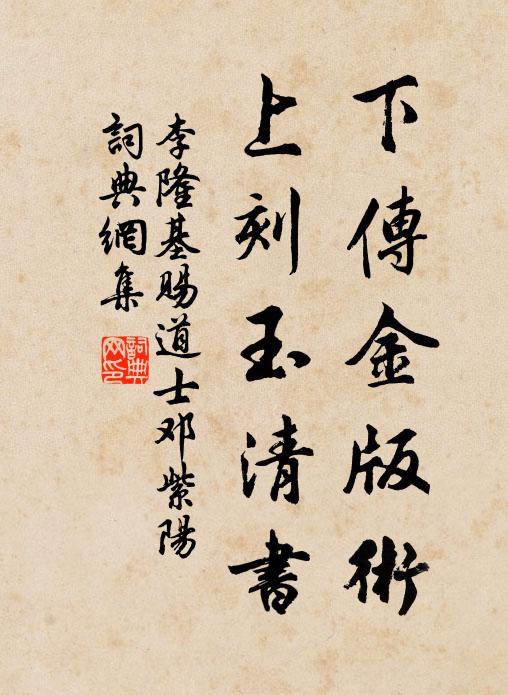 下傳金版術
上刻玉清書
李隆基賜道士邓紫陽
詞典網集
詞典网印